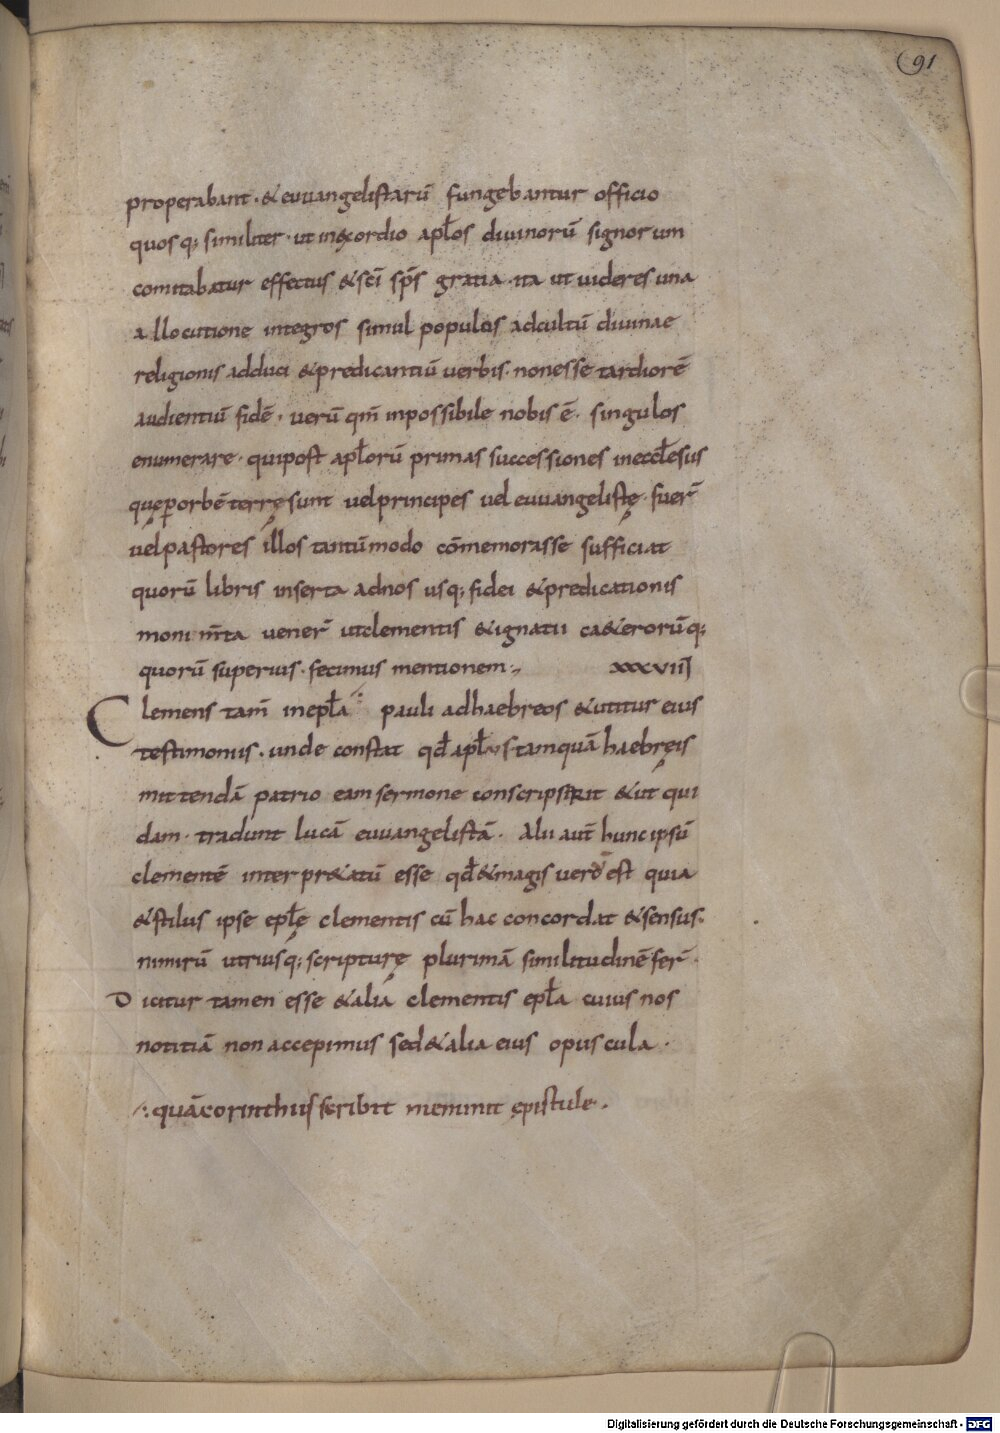 91
properabant · & euuangelistarū fungebantur officio
quosq; similiter · ut in exordio apl̄os diuinorū signorum
comitabatur effectus & sc̄i sp̄s gratia · ita ut uideres una
allocutione integros simul populos ad cultū diuinae
religionis adduci & predicantiū uerbis · non esse tardiorē
audientiū fidē · uerū qm̄ inpossibile nobis ē · singulos
enumerare · qui post apl̄orū primas successiones in eccl̄esus
que per orbē terrę sunt uel principes uel euuangelistę · fuer̄
uel pastores illos tantūmodo cōmemorasse sufficiat
quorū libris inserta ad nos usq; fidei & predicationis
monim̄ta uener̄ ut clementis & ignatii c&erorūq;
quorū superius · fecimus mentionem · xxxvii
Clemens tam̄ in epl̄a ·/· pauli ad haebreos & utitur eius
testimoniis · unde constat qd̄ apl̄us tamquā haebreis
mittendā patrio eam sermone conscripserit & ut qui
dam · tradunt lucā euuangelistā · Alii aut̄ hunc ipsū
clementē interpr&atū esse qd̄ & magis uerū est quia
& stilus ipse epl̄ę clementis cū hac concordat & sensus ·
nimirū utriusq; scripturę plurimā similitudinē fer̄ ·
Dicitur tamen esse & alia clementis epl̄a cuius nos
notitiā non accepimus sed & alia eius opuscula ·
·/· quā corinthiis scribit meminit epistule ·
Digitalisierung gefördert durch die Deutsche Forschungsgemeinschaft - DFG